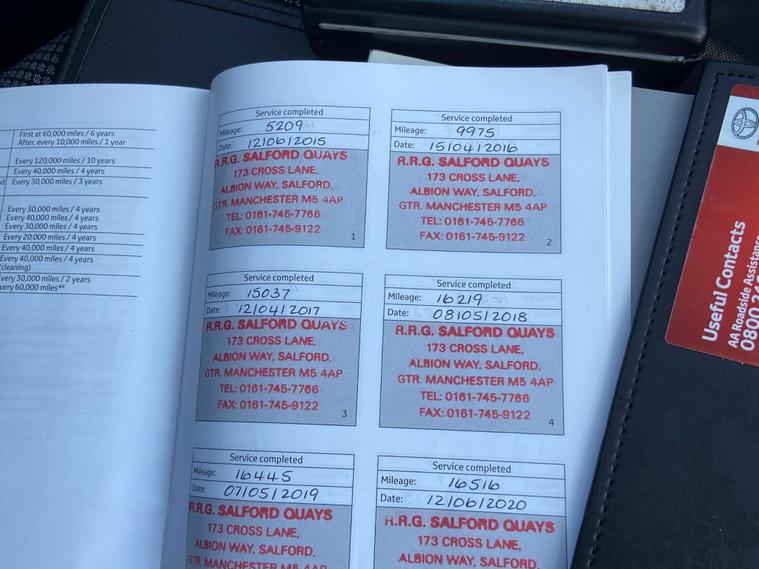 First at 60,000 miles / 6 years
After, every 10,000 miles / 1 year
Every 120,000 miles / 10 years
Every 40,000 miles / 4 years
Every 30,000 miles / 3 years
Every 30,000 miles / 4 years
Every 40,000 miles / 4 years
Every 30,000 miles / 4 years
Every 20,000 miles / 4 years
Every 40,000 miles / 4 years
Every 40,000 miles / 4 years
(cleaning)
Every 30,000 miles / 2 years
every 60,000 miles*⁶
Service completed
Mileage: 5209
Date: 12/06/2015
R.R.G. SALFORD QUAYS
173 CROSS LANE,
ALBION WAY, SALFORD,
GTR. MANCHESTER M5 4AP
TEL: 0161-745-7766
FAX: 0161-745-9122
1
Service completed
Mileage: 9975
Date: 15/04/2016
R.R.G. SALFORD QUAYS
173 CROSS LANE,
ALBION WAY, SALFORD,
GTR. MANCHESTER M5 4AP
TEL: 0161-745-7766
FAX: 0161-745-9122
2
Service completed
Mileage: 15037
Date: 12/04/2017
R.R.G. SALFORD QUAYS
173 CROSS LANE,
ALBION WAY, SALFORD,
GTR. MANCHESTER M5 4AP
TEL: 0161-745-7766
FAX: 0161-745-9122
3
Service completed
Mileage: 16219
Date: 08/05/2018
R.R.G. SALFORD QUAYS
173 CROSS LANE,
ALBION WAY, SALFORD,
GTR. MANCHESTER M5 4AP
TEL: 0161-745-7766
FAX: 0161-745-9122
4
Service completed
Mileage: 16445
Date: 07/05/2019
R.R.G. SALFORD QUAYS
173 CROSS LANE,
ALBION WAY, SALFORD,
GTR. MANCHESTER M5 4AP
Service completed
Mileage: 16516
Date: 12/06/2020
R.R.G. SALFORD QUAYS
173 CROSS LANE,
ALBION WAY, SALFORD,
Useful Contacts
AA Roadside Assistance
0800